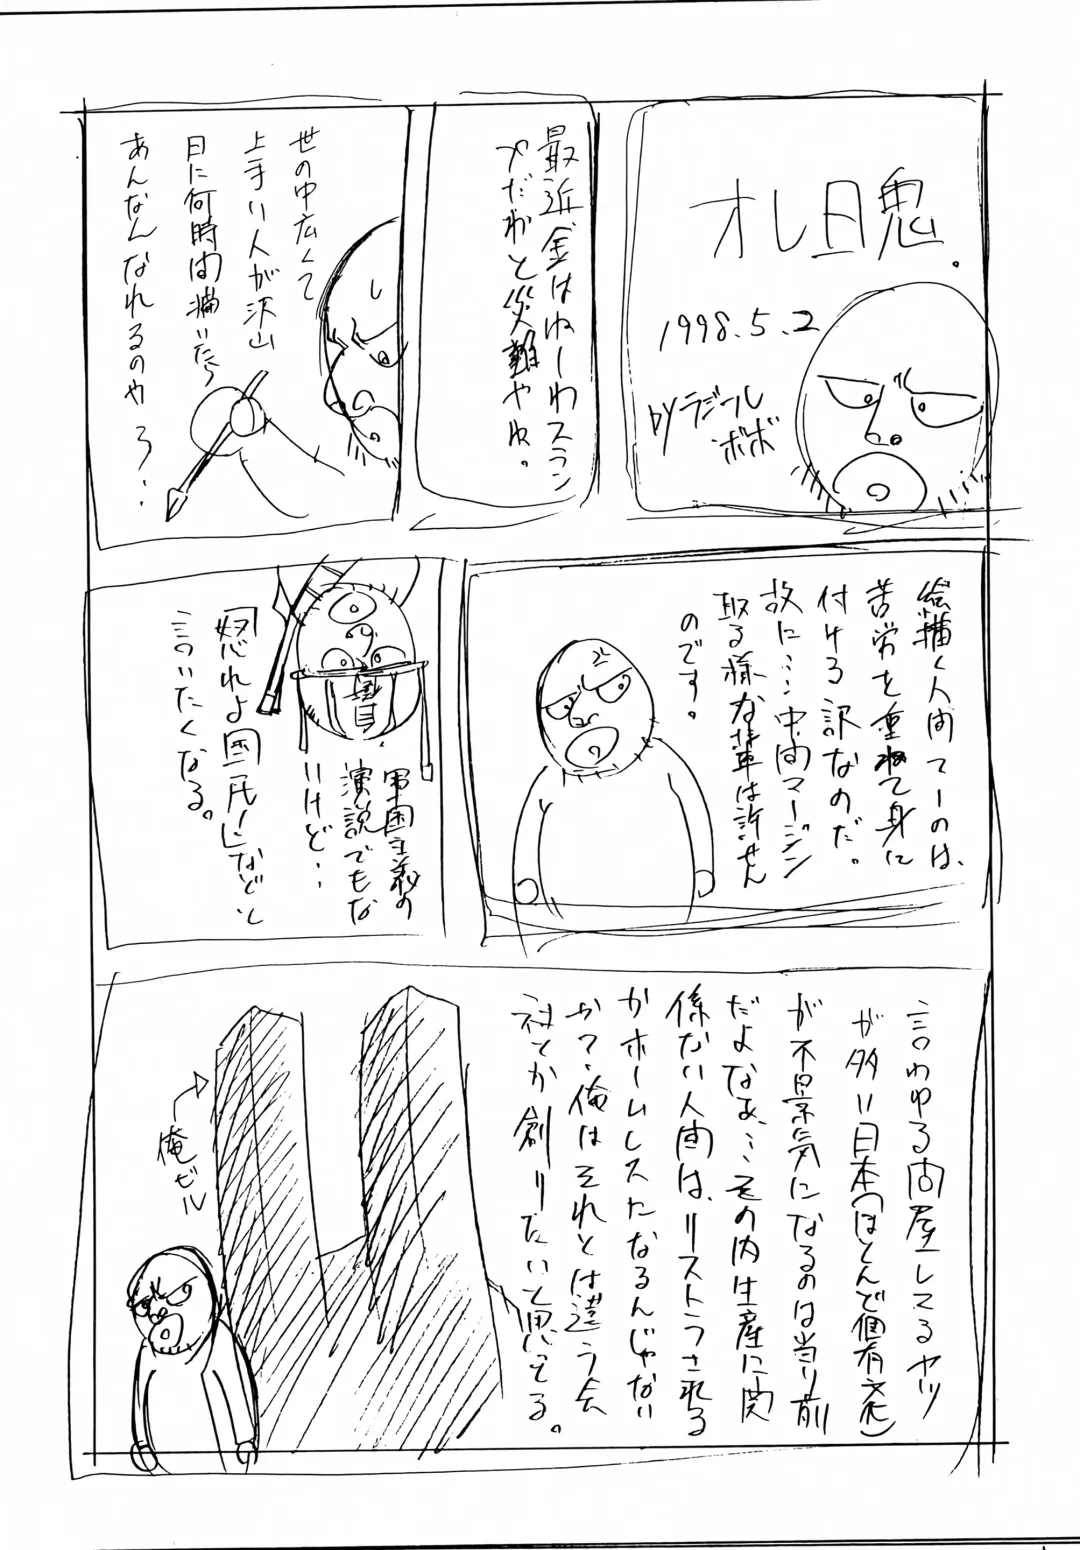 オレ日鬼.
1998.5.2
byラジール
ボボ
最近金はねーわスラン
プだわと災難やね。
世の中広くて
上手い人が沢山
日に何時間描いたら
あんなんなれるのやろ・・
絵描く人間てーのは、
苦労を重ねて身に
付ける訳なのだ。
故に…中間マージン
取る様な輩は許せん
のです。
軍国主義の
演説でもな
いけど・・
「怒れよ国民!」などと
言いたくなる。
言わゆる問屋してるヤツ
が多い日本(ほとんど個有
が不景気になるのは当り前
だよなぁ…その内生産に関
係ない人間は、リストラされる
かホームレスたなるんじゃない
かて、俺はそれとは違う会
社とか創りたいと思ってる。
俺ビル